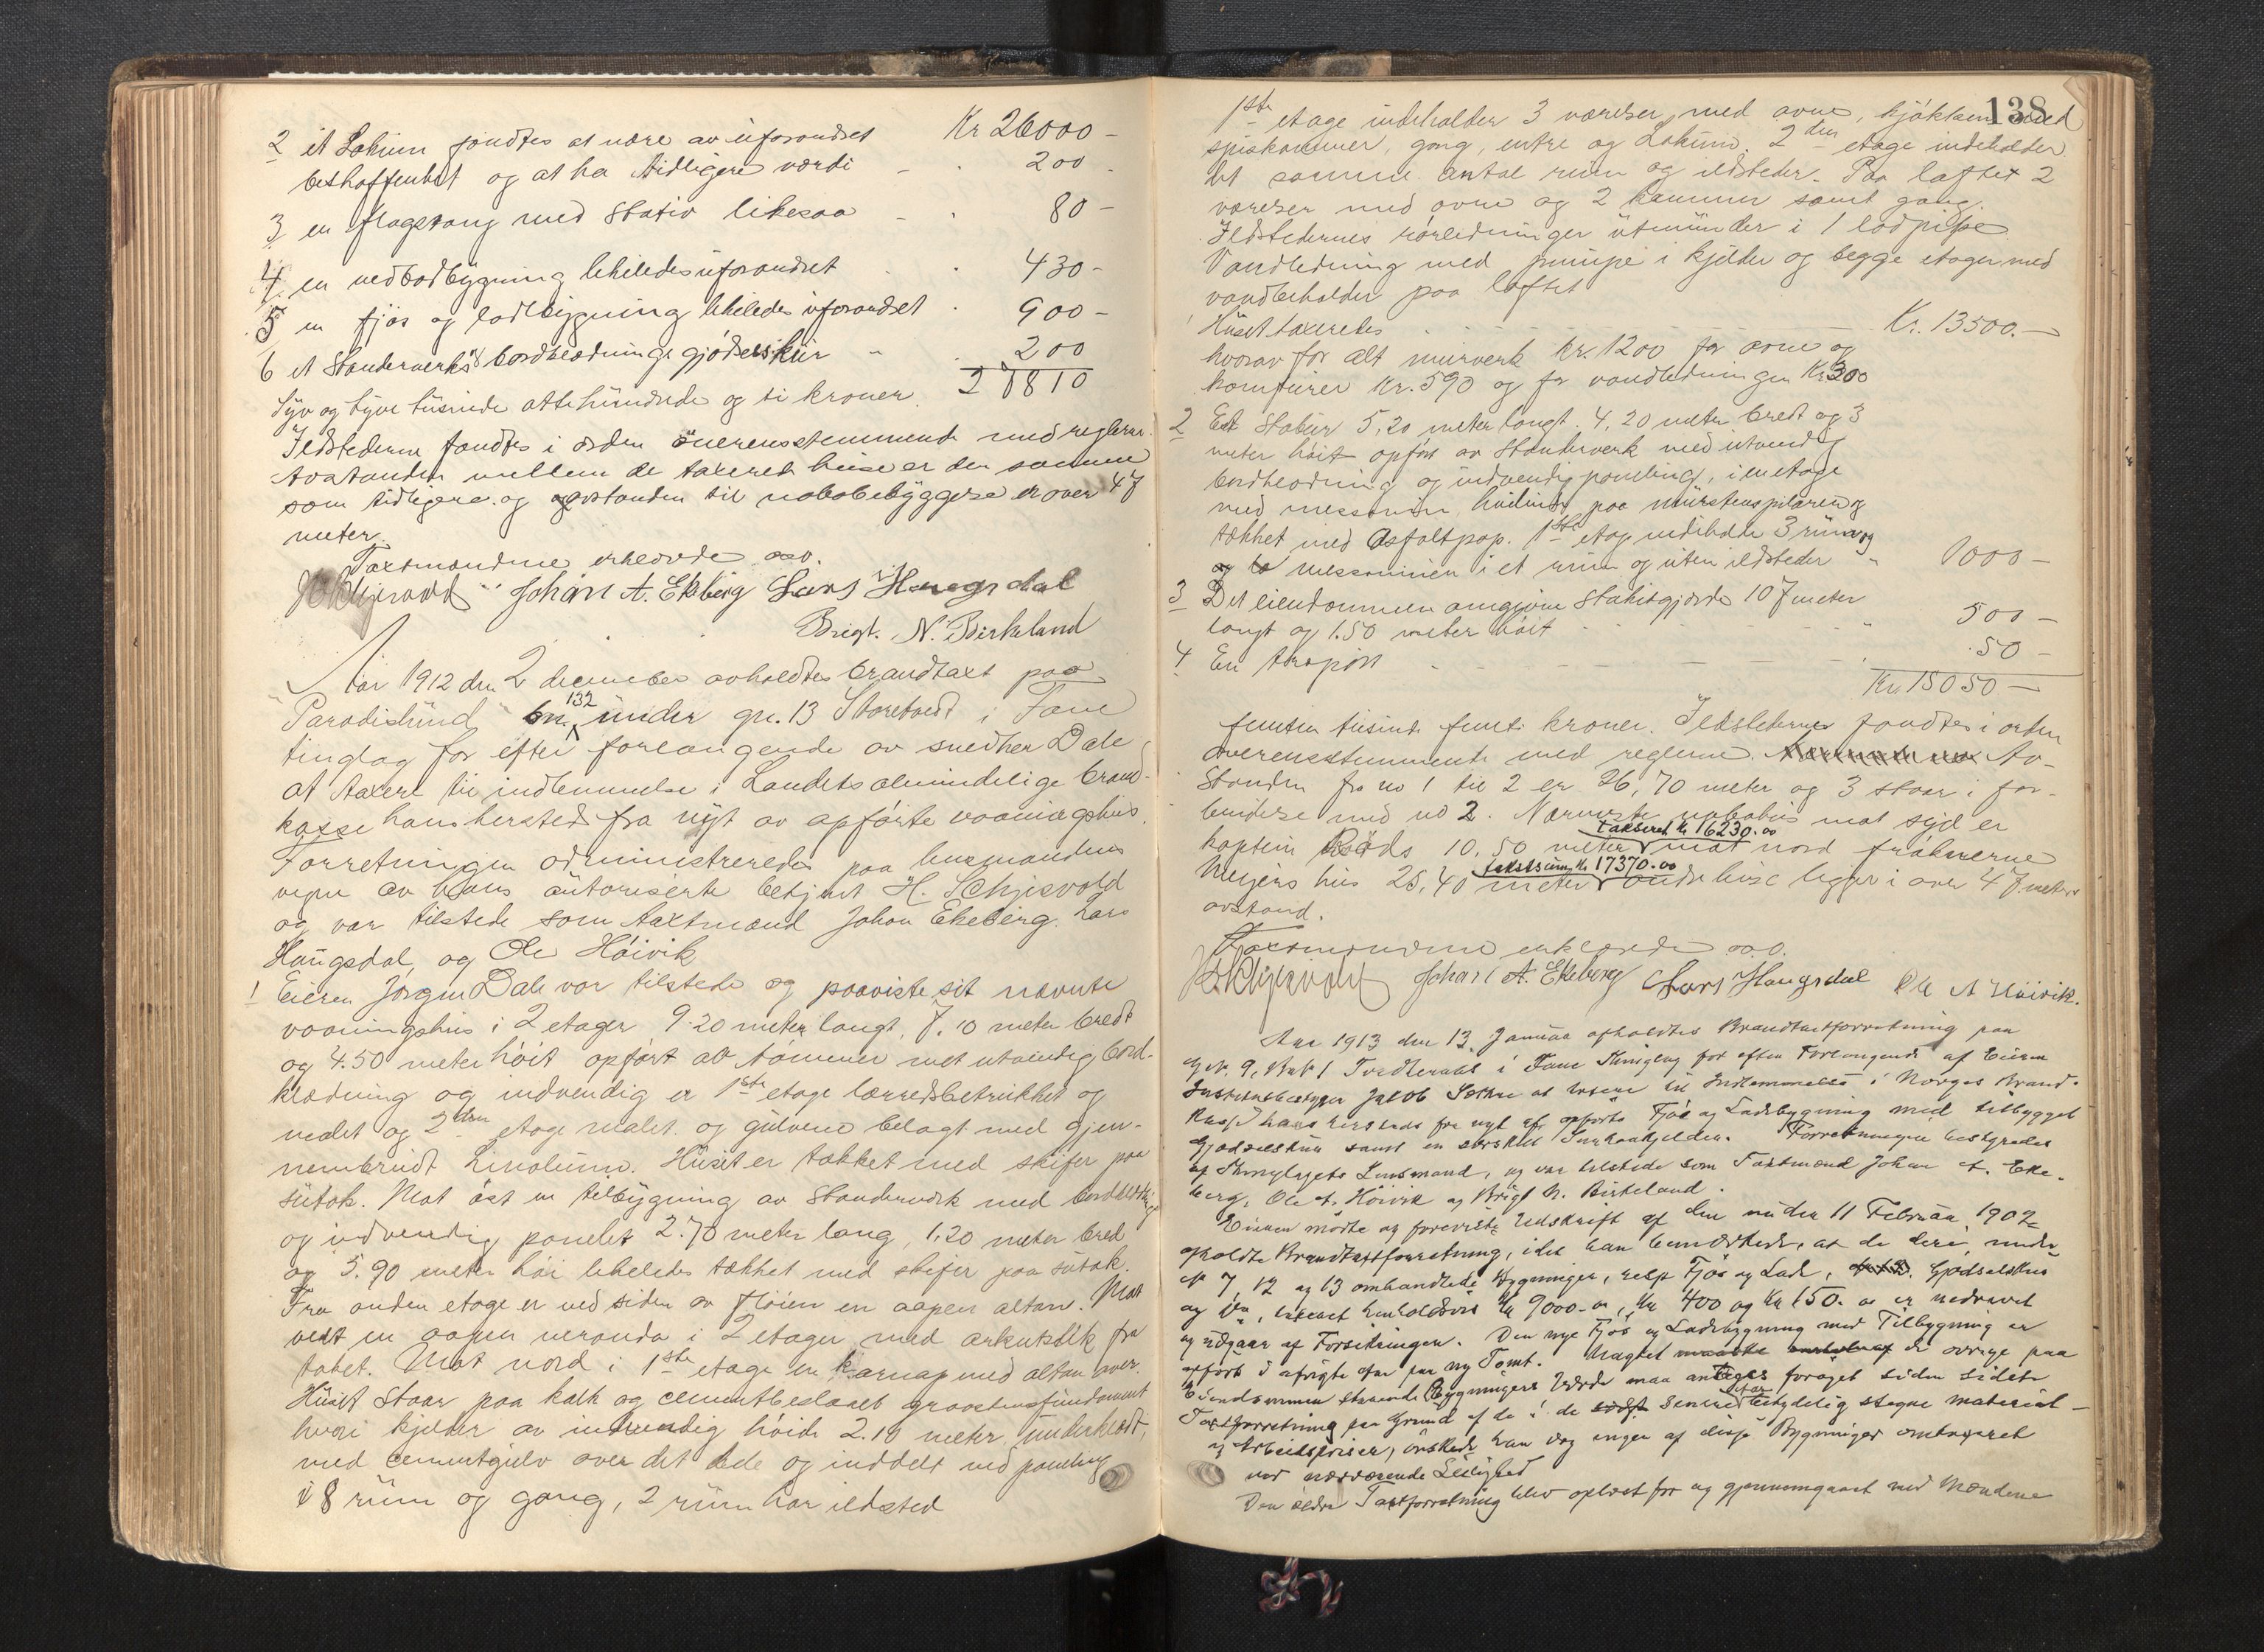 2 et Lokum fandtes at være av uforandret Kr 26000 -
beskaffenhet og at ha tidligere værdi - . 200 -
3 en flagstang med Stativ likesaa - . 80 -
4 en vedbodbygning likeledes uforandret . 430 -
5 en fjøs og ladebygning likeledes uforandret . 900 -
6 et Standerverks bordklædnings gjødselskür - . 200
Syv og tyve tüsinde ottehündrede og ti kroner. 27810
Ildstederne fandtes i orden överensstemmende med reglerne.
Avstanden mellem de taxerede huse er den samme
som tidligere og avstanden til nabobebyggelse er over 47
meter.
Taxtmændene erklærede o.s.v.
H. Schjesvold Johan A. Ekeberg Lars Haugsdal
Brigt. N. Birkeland
Aar 1912 den 2 december avholdtes brandtaxt paa
"Paradislünd" bn. 132 ünder gn. 13 Storetvedt i Fane
tinglag for efter forlangende av snedker Dale
at taxere til indlemmelse i Landets almindelige brand-
kasse hans hersteds fra nyt av opførte vaaningshus.
Forretningen administreredes paa lensmandens
vegne av hans autoriserte betjent H. Schjesvold
og var tilstede som taxtmænd Johan Ekeberg. Lars
Haugsdal, og Ole Høivik
1 Eieren Jörgen Dale var tilstede og paaviste sit nævnte
vaaningshus i 2 etager 9.20 meter langt, 7.10 meter bredt
og 4.50 meter høit opført av tømmer met utvendig bord-
klædning og indvendig er 1ste etage lærredsbetrukket og
malet og 2den etage malet og gülvene belagt med gjen-
nembrudt Linoleum. Hüset er tækket med skifer paa
sütak. Mot öst en tilbygning av Standerverk med bordklædning
og indvendig panelet 2.70 meter lang, 1.20 meter bred
og 5.90 meter høi likeledes tækket med skifer paa sutak.
Fra anden etage er ved siden av fløien en aapen altan. Mot
vest en aapen veranda i 2 etager med arkutstik fra
taket. Mot nord i 1ste etage en karnap med altan over.
Hüset staar paa kalk og cementbeslaaet graastensfundament
hvori kjelder av indvendig høide 2.10 meter, ünderklædt,
med cementgulv over det hele og inddelt ved paneling
i 8 rüm og gang, 2 rüm har ildsted
138
1ste etage indeholder 3 værelser med ovne, kjøkken med
spiskammer, gang, entre og Lokum. 2den etage indeholder
det samme antal rum og ildsteder. Paa loftet 2
værelser med ovne og 2 kammer samt gang.
Ildstedernes rørledninger utmünder i 1 lodpipe.
Vandledning med pumpe i kjelder og begge etager med
vandbeholder paa loftet
Huset taxeredes Kr. 13500. -
hvorav for alt mürverk Kr. 1200 for ovne og
komfurer Kr. 590 og for vandledningen Kr 300
2 Et Stabur 5,20 meter langt. 4,20 meter bredt og 3
meter høit opført av Standerverk med utvendig
bordklædning og indvendig paneling, i en etage
med messanin, hvilende paa mürstenspilarer og
tækket med Asfaltpap. 1ste etage indeholder 3 rüm og
messaninen i et rüm og uten ildsteder " 1000 -
3 Det eiendommen omgivne Stakitgjærde 107 meter
langt og 1.50 meter høit " 500 -
4 En træport . 50 -
Kr. 15050 -
femten tüsinde femti kroner. Ildstederne fandtes i orden
overensstemmende med reglerne. Av-
standen fra no 1 til 2 er 26,70 meter og 3 staar i for-
bindelse med no 2. Nærmeste nabohus mot syd er
takseret kr 16230.00
kaptein Röds 10.50 meter mot nord frøknerne
takstsum kr 17370.00
Meyers hus 25,40 meter andre huse ligger i over 47 meters
avstand.
Taxtmændene erklærede o.s.v.
H. Schjesvold Johan A. Ekeberg Lars Haugsdal Ole A Höivik.
Aar 1913 den 13. Januar afholdtes Brandtaxtforretning paa
G.N. 9, B.N. 1 Tvedteraas i Fane Thinglag for efter Forlangende af Eieren
Institutbestyrer Jakob Sæthre at taxere til Indlemmelse i Norges Brand-
kasse hans hersteds fra nyt af opførte Fjøs og Ladebygning med tilbygget
Gjødselskur samt en særskilt Surkaalkjelder. Forretningen bestyredes
af Thinglagets Lensmand, og var tilstede som Taxtmænd Johan A. Eke-
berg, Ole A. Höivik og Brigt N. Birkeland.
Eieren mødte og foreviste Udskrift af den under 11 Februar 1902
afholdte Brandtaxtforretning, idet han bemærkede, at de deri, under
No 7, 12 og 13 omhandlede Bygninger, resp Fjøs og Lade, Gjødselskur
og Do, takseret henholdsvis Kr 9000.00, Kr 400 og Kr 150.00 er nedrevet
og udgaar af Forsikringen. Den nye Fjøs og Ladebygning med Tilbygning er
opført i afvigte Aar paa ny Tomt. Uagtet de øvrige paa
Eiendommen staaende Bygningers Værde maa antages forøget siden sidste
Taxtforretning paa Grund af de i de senere Aar betydelig stegne material -
og Arbeidspriser, ønskede han dog ingen af disse Bygninger omtaxeret
ved nærværende Leilighed
Den ældre Taxtforretning blev oplæst for og gjennemgaaet med Mændene